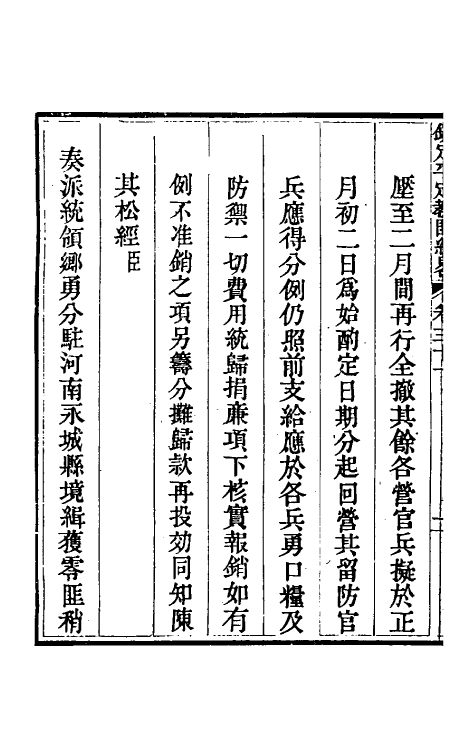 壓至二月間再行全撤其餘各營官兵擬於正
月初二日爲始酌定日期分起回營其留防官
兵應得分例仍照前支給應於各兵勇口糧及
防禦一切費用統歸捐廉項下核實報銷如有
例不准銷之項另籌分攤歸款再投効同知陳
其松經臣
奏派統領鄉勇分駐河南永城縣境緝獲零匪稍